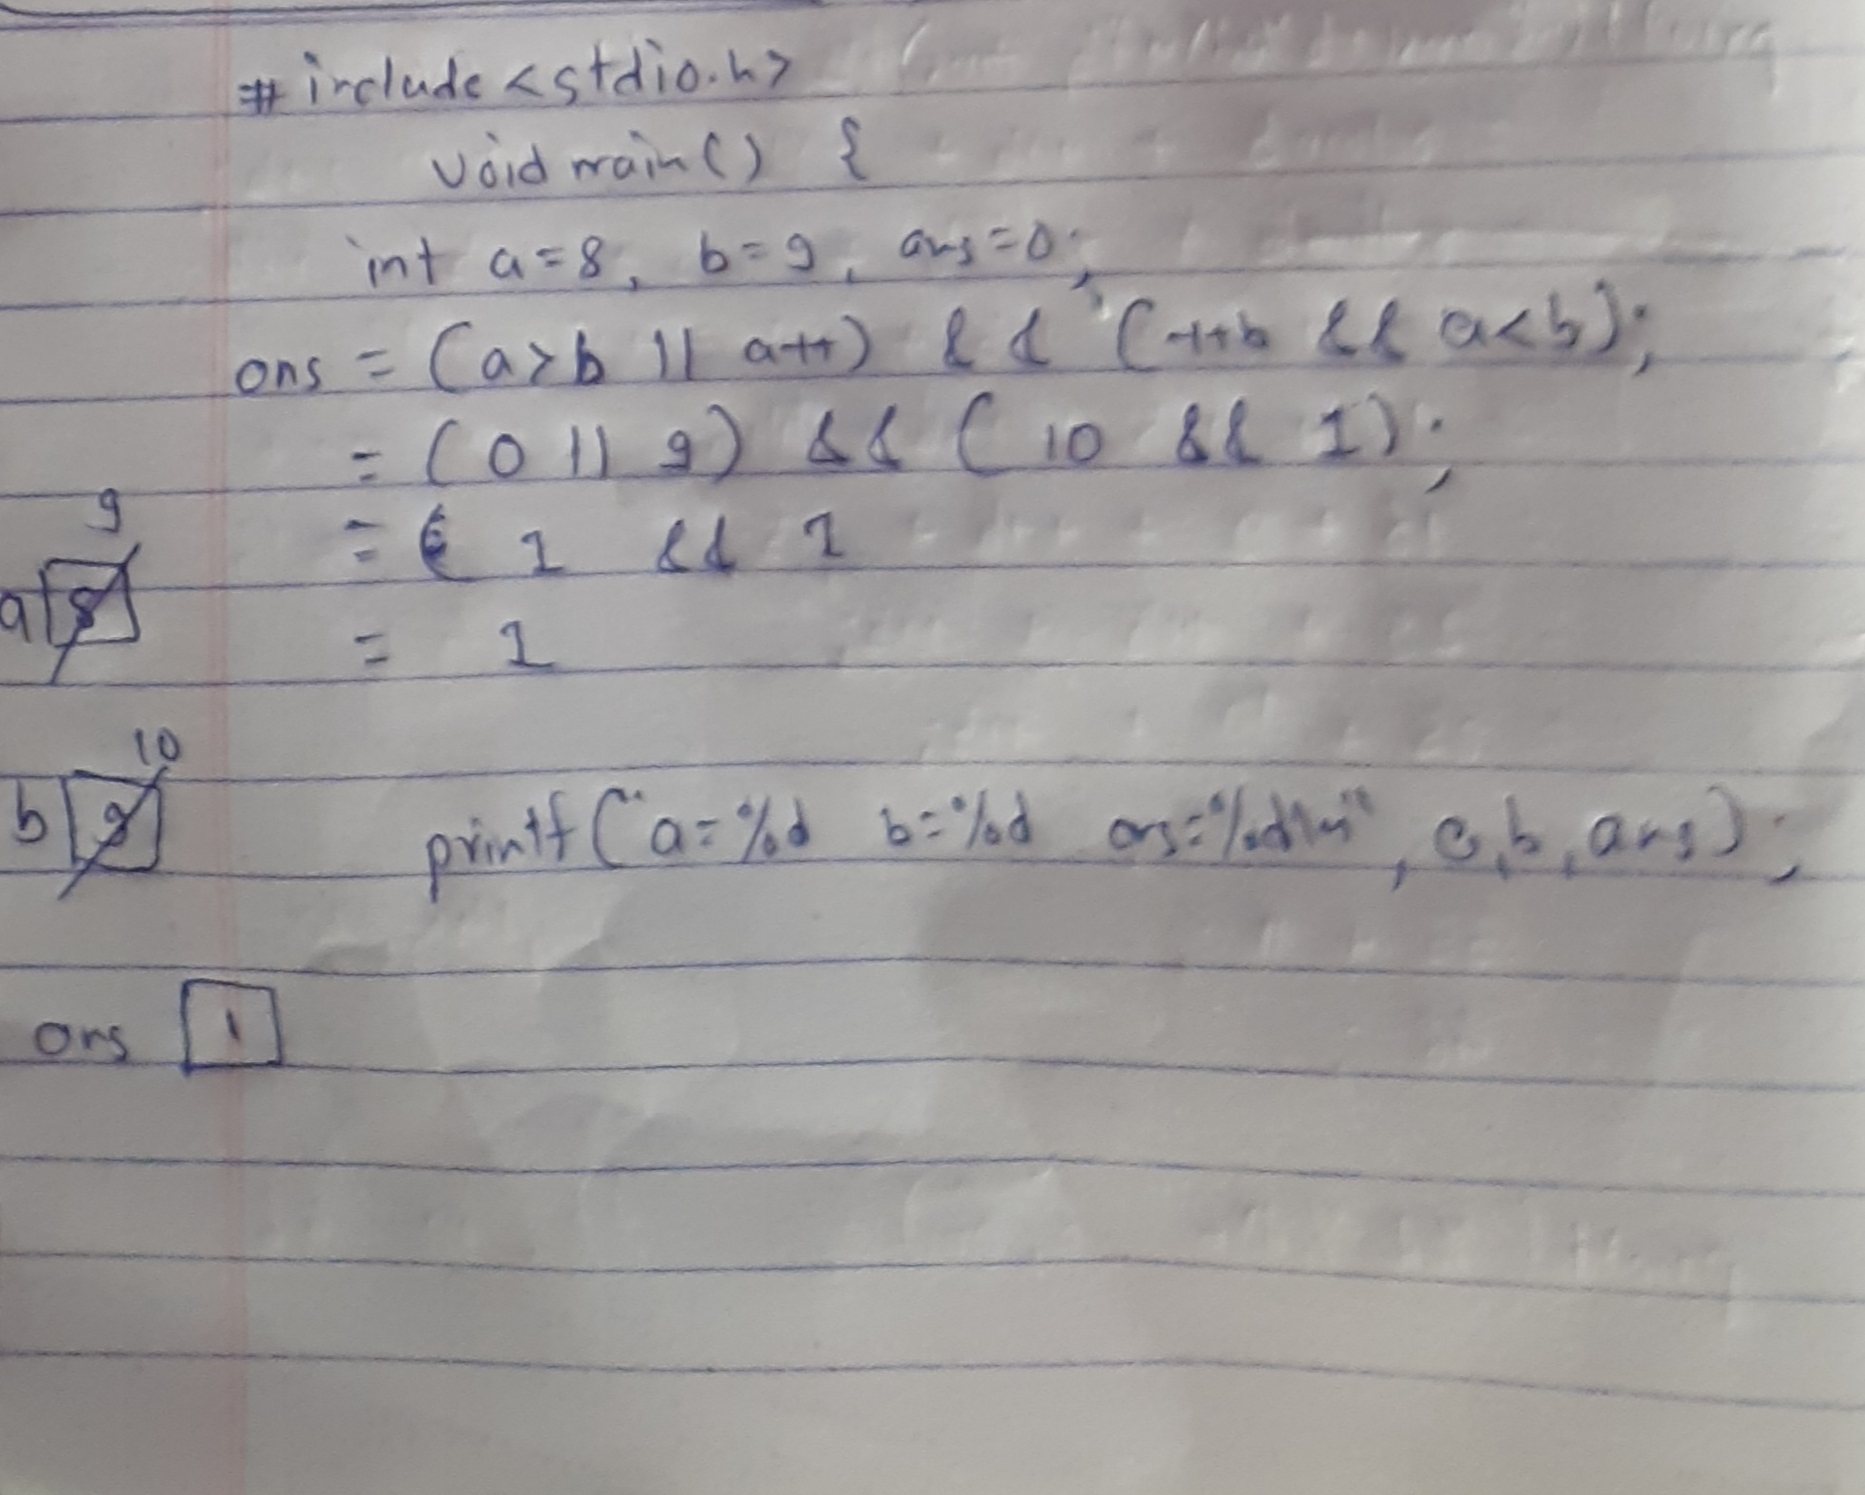 #include <stdio.h>
void main() {
int a=8, b=9, ans=0;
ans = (a>b || a++) && (++b && a<b);
= (0 || 9) && (10 && 1);
= 1 && 1
= 1
9
a 8
10
b 9
printf("a=%d b=%d ans=%d\n", a,b,ans);
ans 1